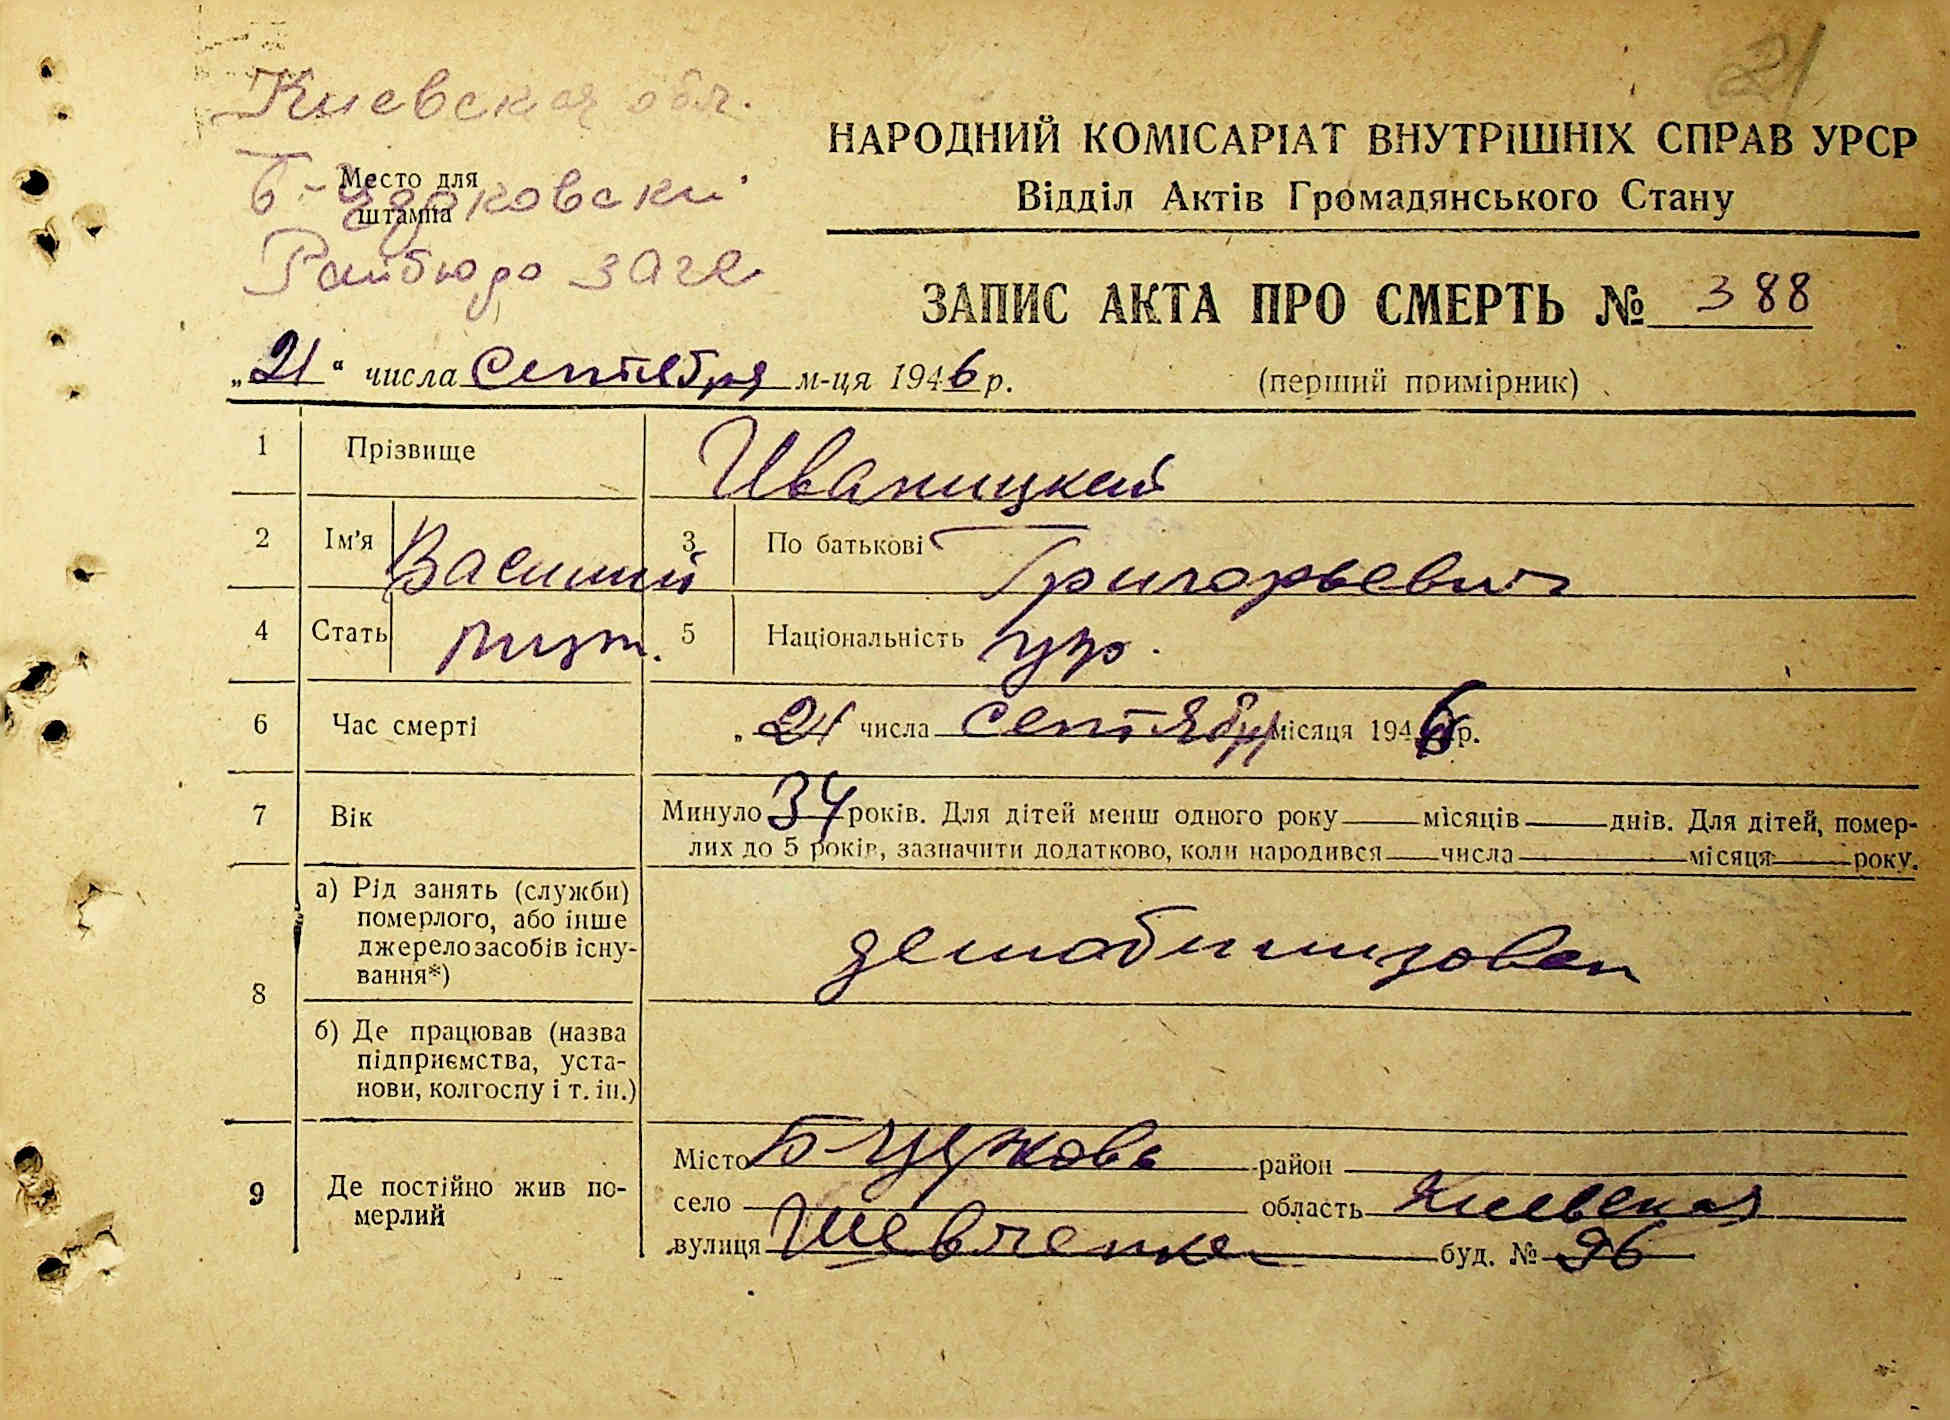 21
Киевская обл.
Б-Церковский
Место для
штампа
Райбюро загс
НАРОДНИЙ КОМІСАРІАТ ВНУТРІШНІХ СПРАВ УРСР
Відділ Актів Громадянського Стану
ЗАПИС АКТА ПРО СМЕРТЬ № 388
„21“ числа сентября м-ця 1946 р.
(перший примірник)
1 Прізвище Иваницкий
2 Ім'я Василий 3 По батькові Григорьевич
4 Стать муж. 5 Національність укр.
6 Час смерті „21 числа сентября місяця 1946 р.
7 Вік Минуло 34 років. Для дітей менш одного року — місяців — днів. Для дітей, помер-
лих до 5 років, зазначити додатково, коли народився — числа — місяця — року.
8
а) Рід занять (служби)
померлого, або інше
джерело засобів існу-
вання*)
демобилизован
б) Де працював (назва
підприємства, уста-
нови, колгоспу і т. ін.)
9 Де постійно жив по-
мерлий
Місто Б-Церковь район
село область Киевская
вулиця Шевченка буд. № 96